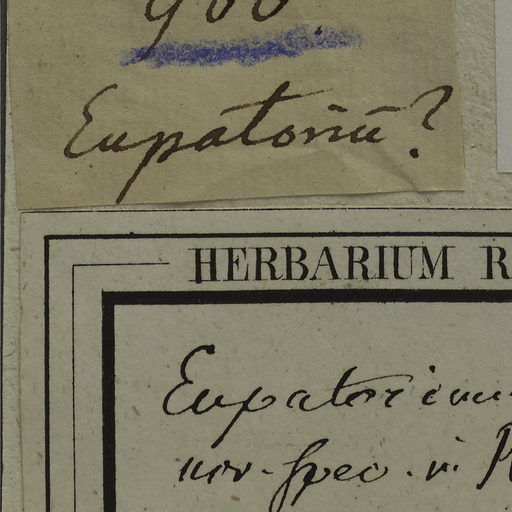 Eupatoriū?
HERBARIUM R
Eupatorium
nov. spec.